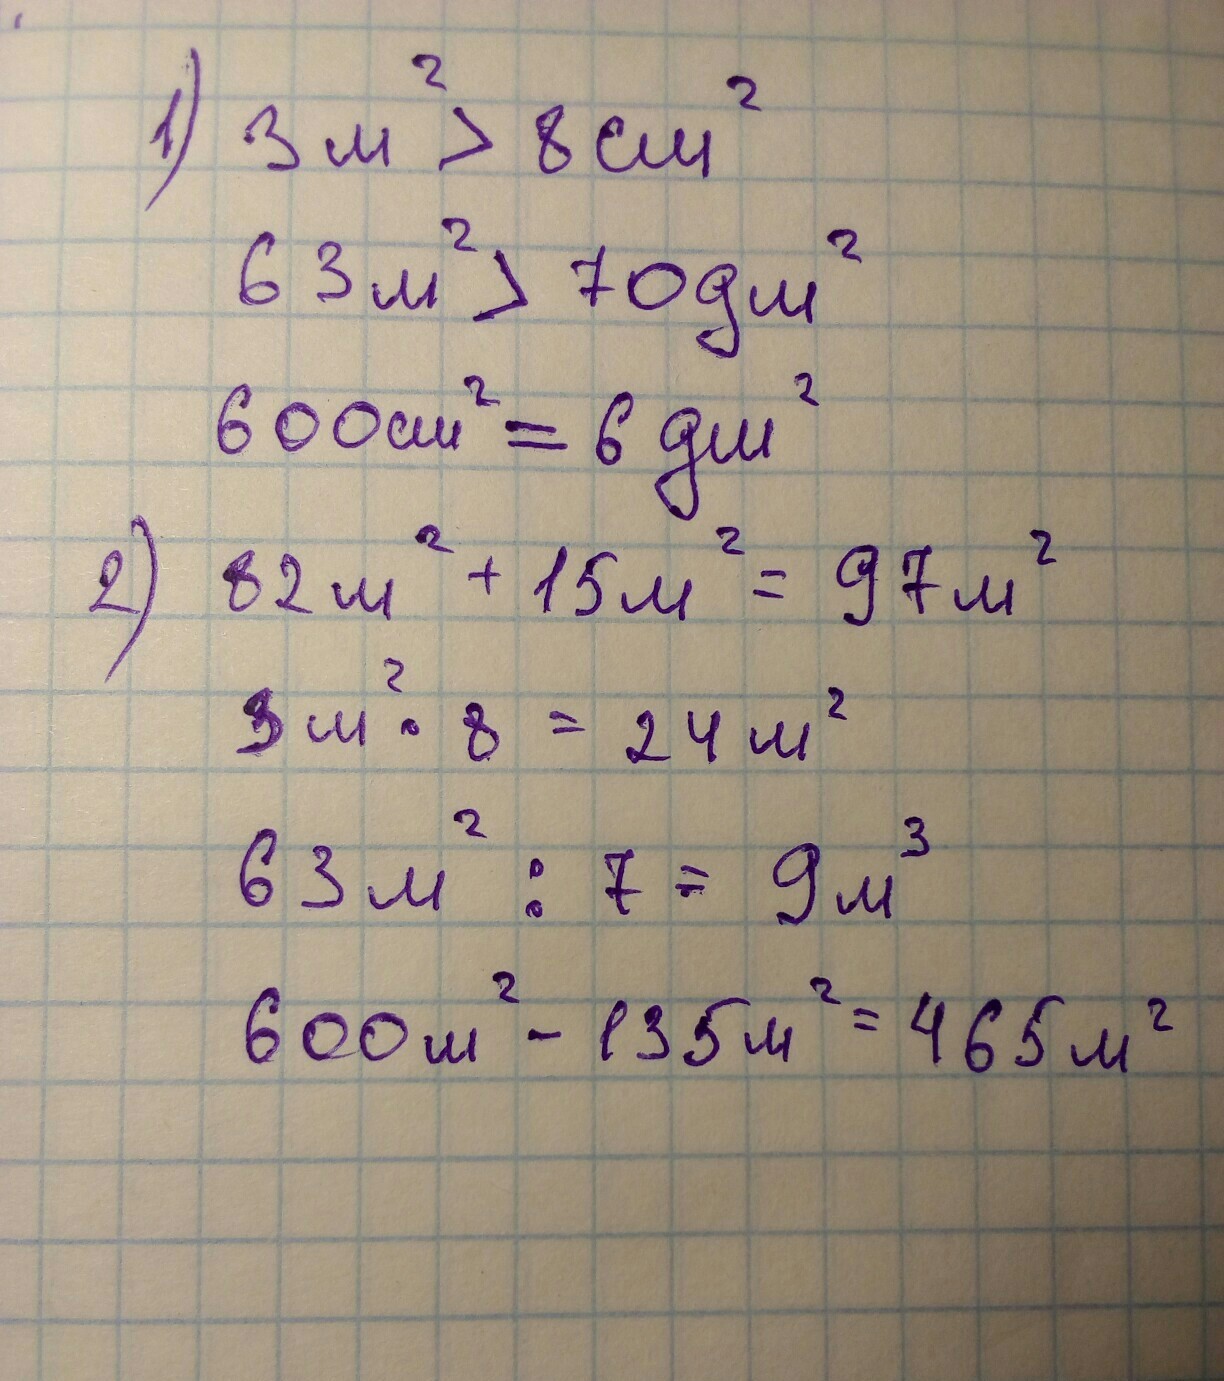 1) 3м² > 8см²
63м² > 70дм²
600см² = 6дм²
2) 82м² + 15м² = 97м²
3м² · 8 = 24м²
63м² : 7 = 9м³
600м² - 135м² = 465м²